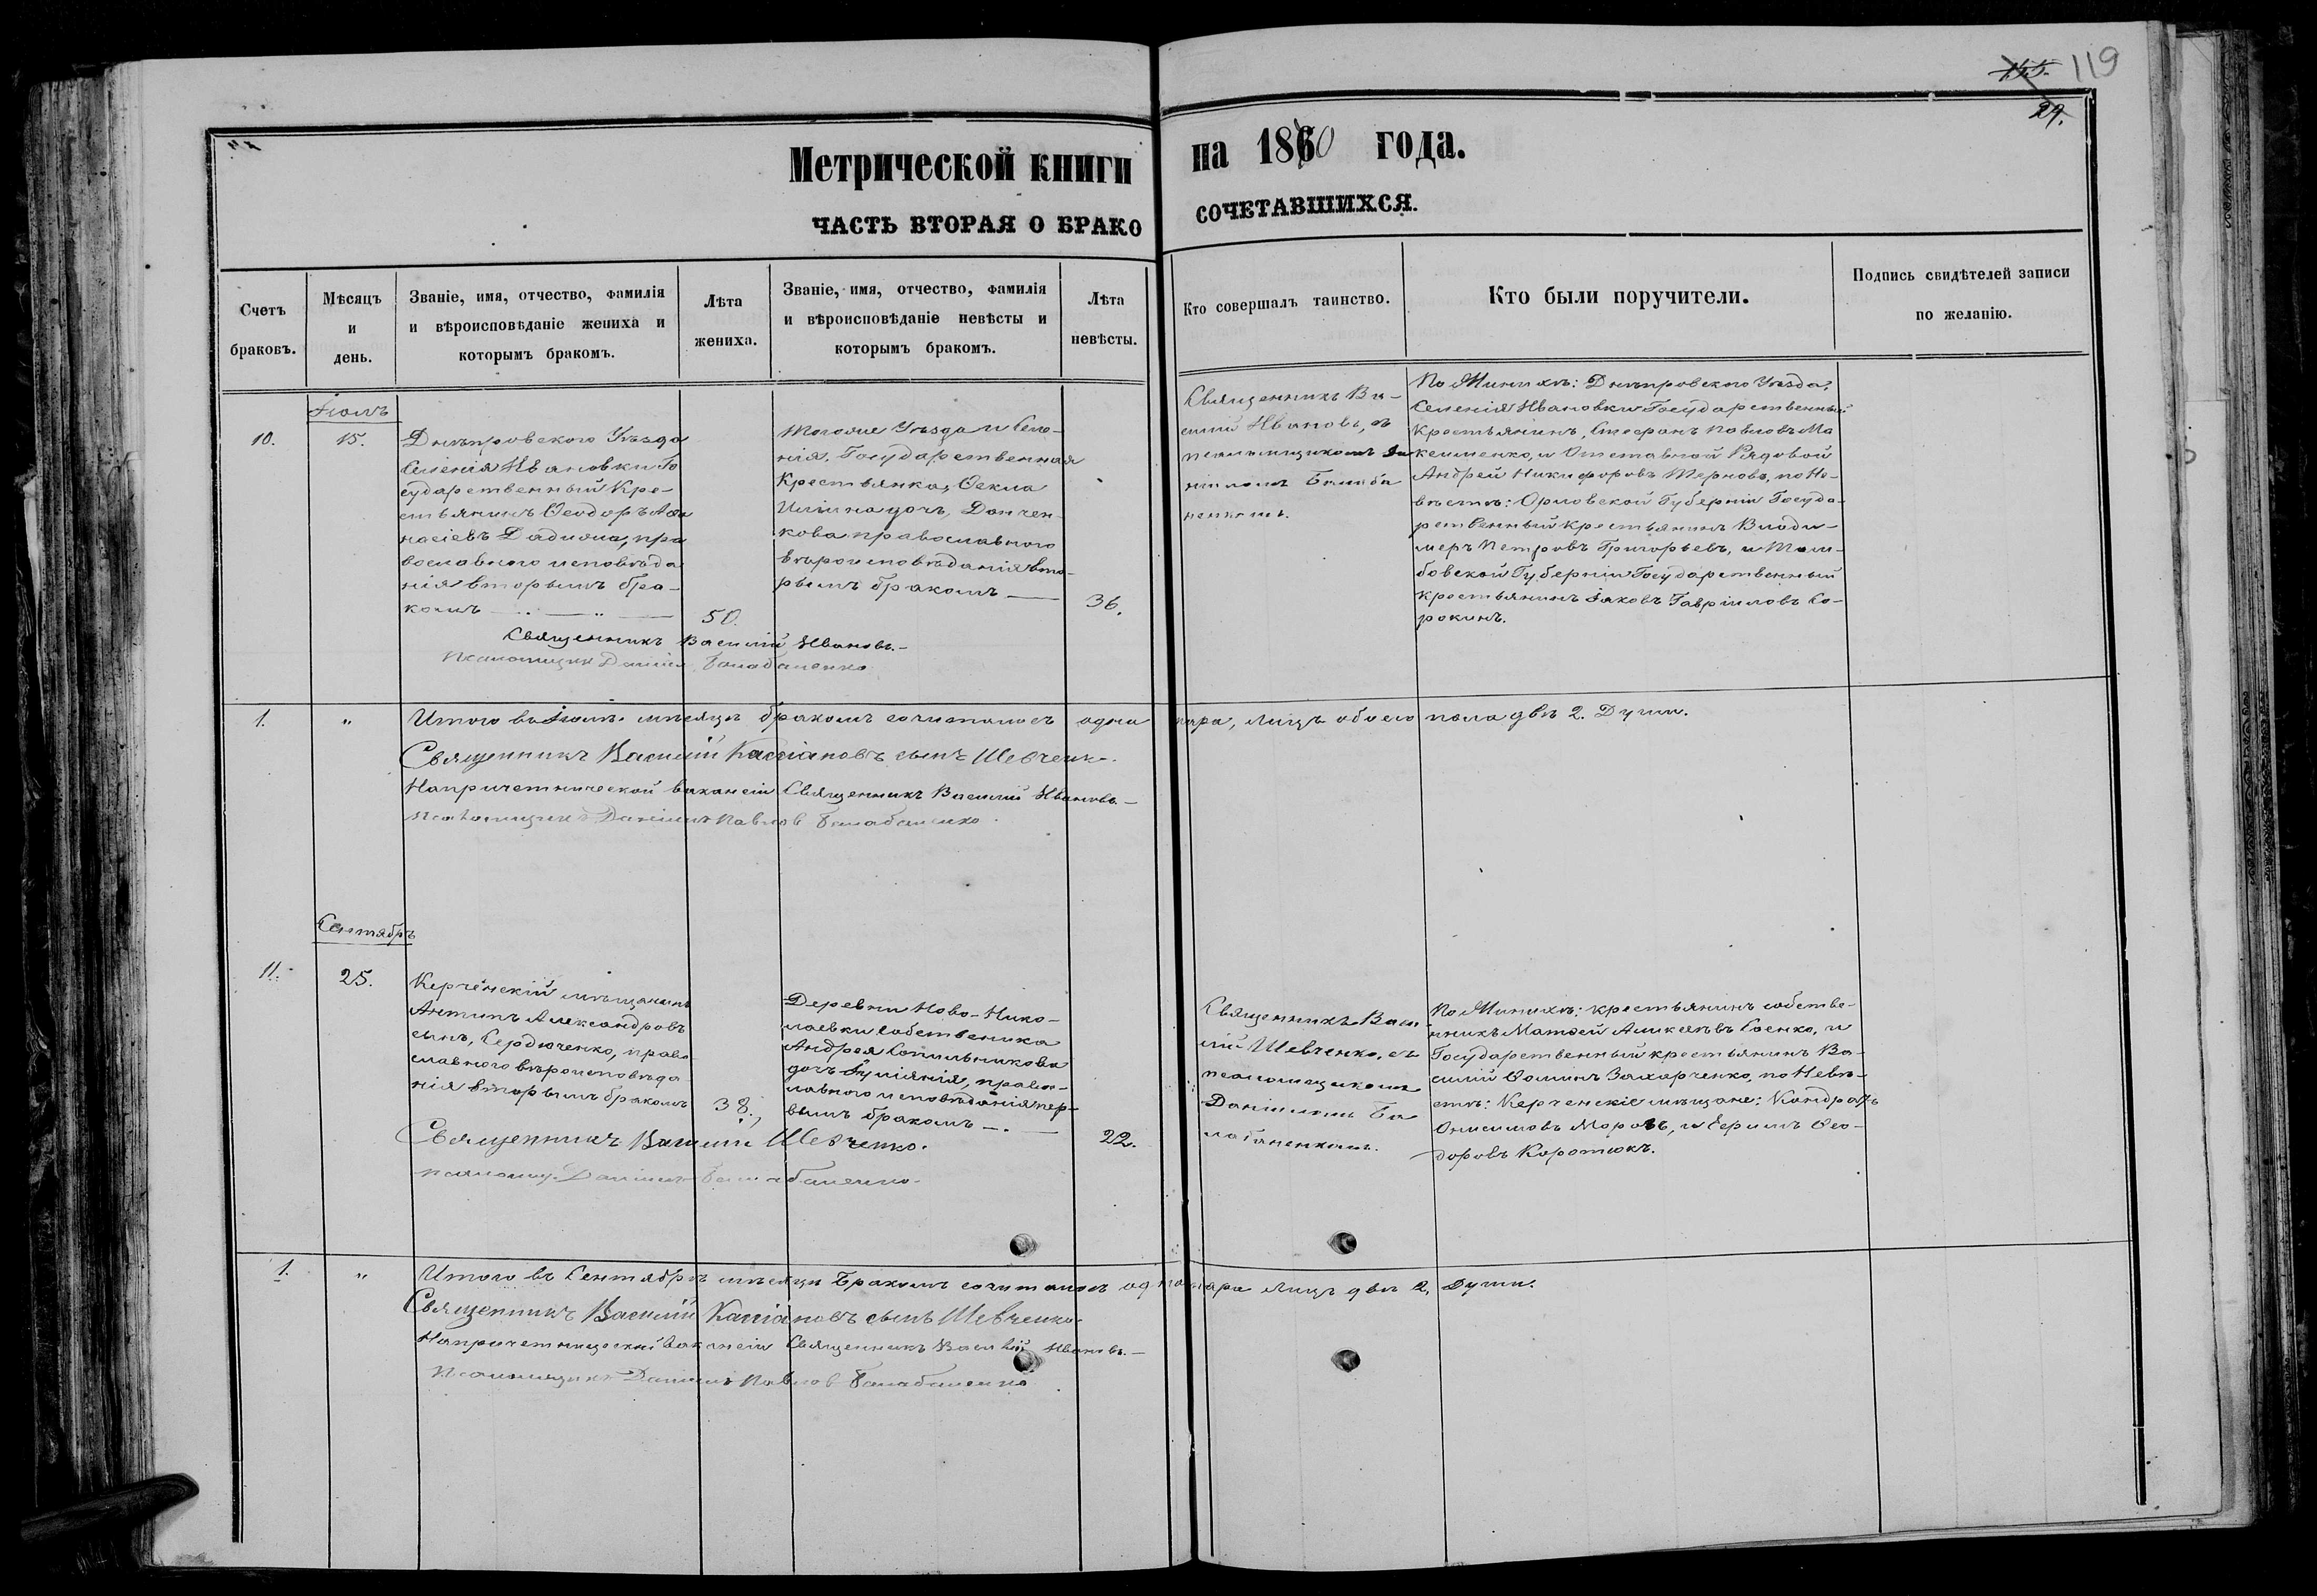 155. 119
29.
Метрической книги на 1870 года.
ЧАСТЬ ВТОРАЯ О БРАКОСОЧЕТАВШИХСЯ.
Счетъ браковъ.
Мѣсяцъ и день.
Званіе, имя, отчество, фамилія и вѣроисповѣданіе жениха и которымъ бракомъ.
Лѣта жениха.
Званіе, имя, отчество, фамилія и вѣроисповѣданіе невѣсты и которымъ бракомъ.
Лѣта невѣсты.
Кто совершалъ таинство.
Кто были поручители.
Подпись свидѣтелей записи по желанію.
Іюль
10.
15.
Днѣпровского Уѣзда
Селенія Ивановки Го
сударственный Кре-
стьянинъ Ѳеодоръ Аѳа
насіевъ Дадыма, пра
вославного исповѣда
нія вторымъ бра-
комъ
50.
Тогоже Уѣзда и Селе-
нія, Государственная
Крестьянка, Ѳекла
Ильина дочь, Дончен-
кова православного
вѣроисповѣданія вто-
рымъ бракомъ
36.
Священникъ Ва-
силій Ивановъ, съ
псаломщикомъ Да
ніиломъ Балаба
ненкомъ.
По Женихѣ: Днѣпровского Уѣзда,
Селенія Ивановки Государственный
Крестьянинъ, Стефанъ Павловъ Ма
ксименко, и Отставной Рядовой
Андрей Никифоровъ Терновъ, по Не-
вѣстѣ: Орловской Губерніи Госуда-
рственный крестьянинъ Влади-
меръ Петровъ Григорьевъ, и Там-
бовской Губерніи Государственный
крестьянинъ Іаковъ Гавріиловъ Со-
рокинъ.
Священникъ Василій Ивановъ.
Псаломщикъ Даніилъ Балабаненко
1.
"
Итого въ Іюлѣ мѣсяцѣ бракомъ сочиталось одна пара, лицъ обоего пола двѣ 2. Души.
Священникъ Василій Кассіановъ сынъ Шевченко.
На причетнической вакансіи Священникъ Василій Ивановъ
Псаломщикъ Даніилъ Павловъ Балабаненко.
Сентябрь
11.
25.
Керченскій мѣщанинъ
Антипъ Александровъ
сынъ, Сердюченко, право
славного вѣроисповѣда
нія вторымъ бракомъ
38.
Деревни Ново-Нико-
лаевки собственика
Андрея Сотникова
дочь Іуліянія, право-
лавного исповѣданія пер-
вымъ бракомъ
22.
Священникъ Васи-
лій Шевченко, съ
псаломщикомъ
Даніиломъ Ба
лабаненкомъ.
По Женихѣ: крестьянинъ собстве-
нникъ Матѳей Алексѣевъ Соенко, и
Государственный крестьянинъ Ва-
силій Ѳоминъ Захарченко, по Невѣ-
стѣ: Керченскіе мѣщане: Кандратъ
Онисимовъ Морозъ, и Ефимъ Ѳео-
доровъ Коротюкъ.
Священникъ Василій Шевченко.
псаломщ. Даніилъ Балабаненко.
1.
"
Итого въ Сентябрѣ мѣсяцѣ Бракомъ сочиталось одна пара лицъ двѣ 2, Души.
Священникъ Василій Кассіановъ сынъ Шевченко.
На причетнической вакансіи Священникъ Василій Ивановъ.
Псаломщикъ Даніилъ Павловъ Балабаненко